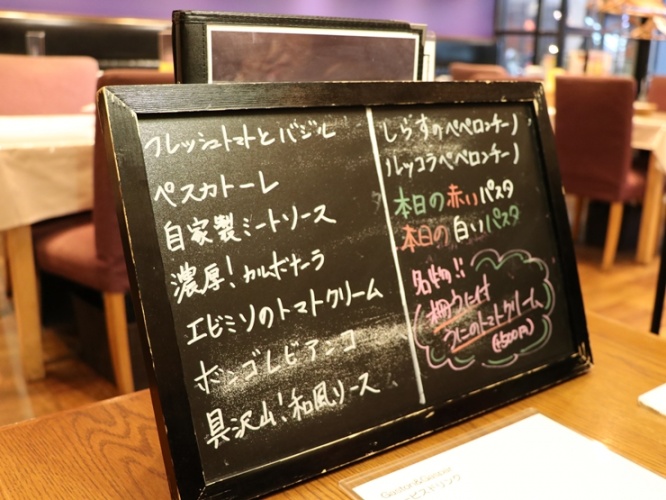 フレッシュトマトとバジル
ペスカトーレ
自家製ミートソース
濃厚!カルボナーラ
エビミソのトマトクリーム
ボンゴレビアンコ
具沢山!和風ソース
しらすのペペロンチーノ
ルッコラペペロンチーノ
本日の赤いパスタ
本日の白いパスタ
名物!!
棚うに付
うにのトマトクリーム
(+500円)